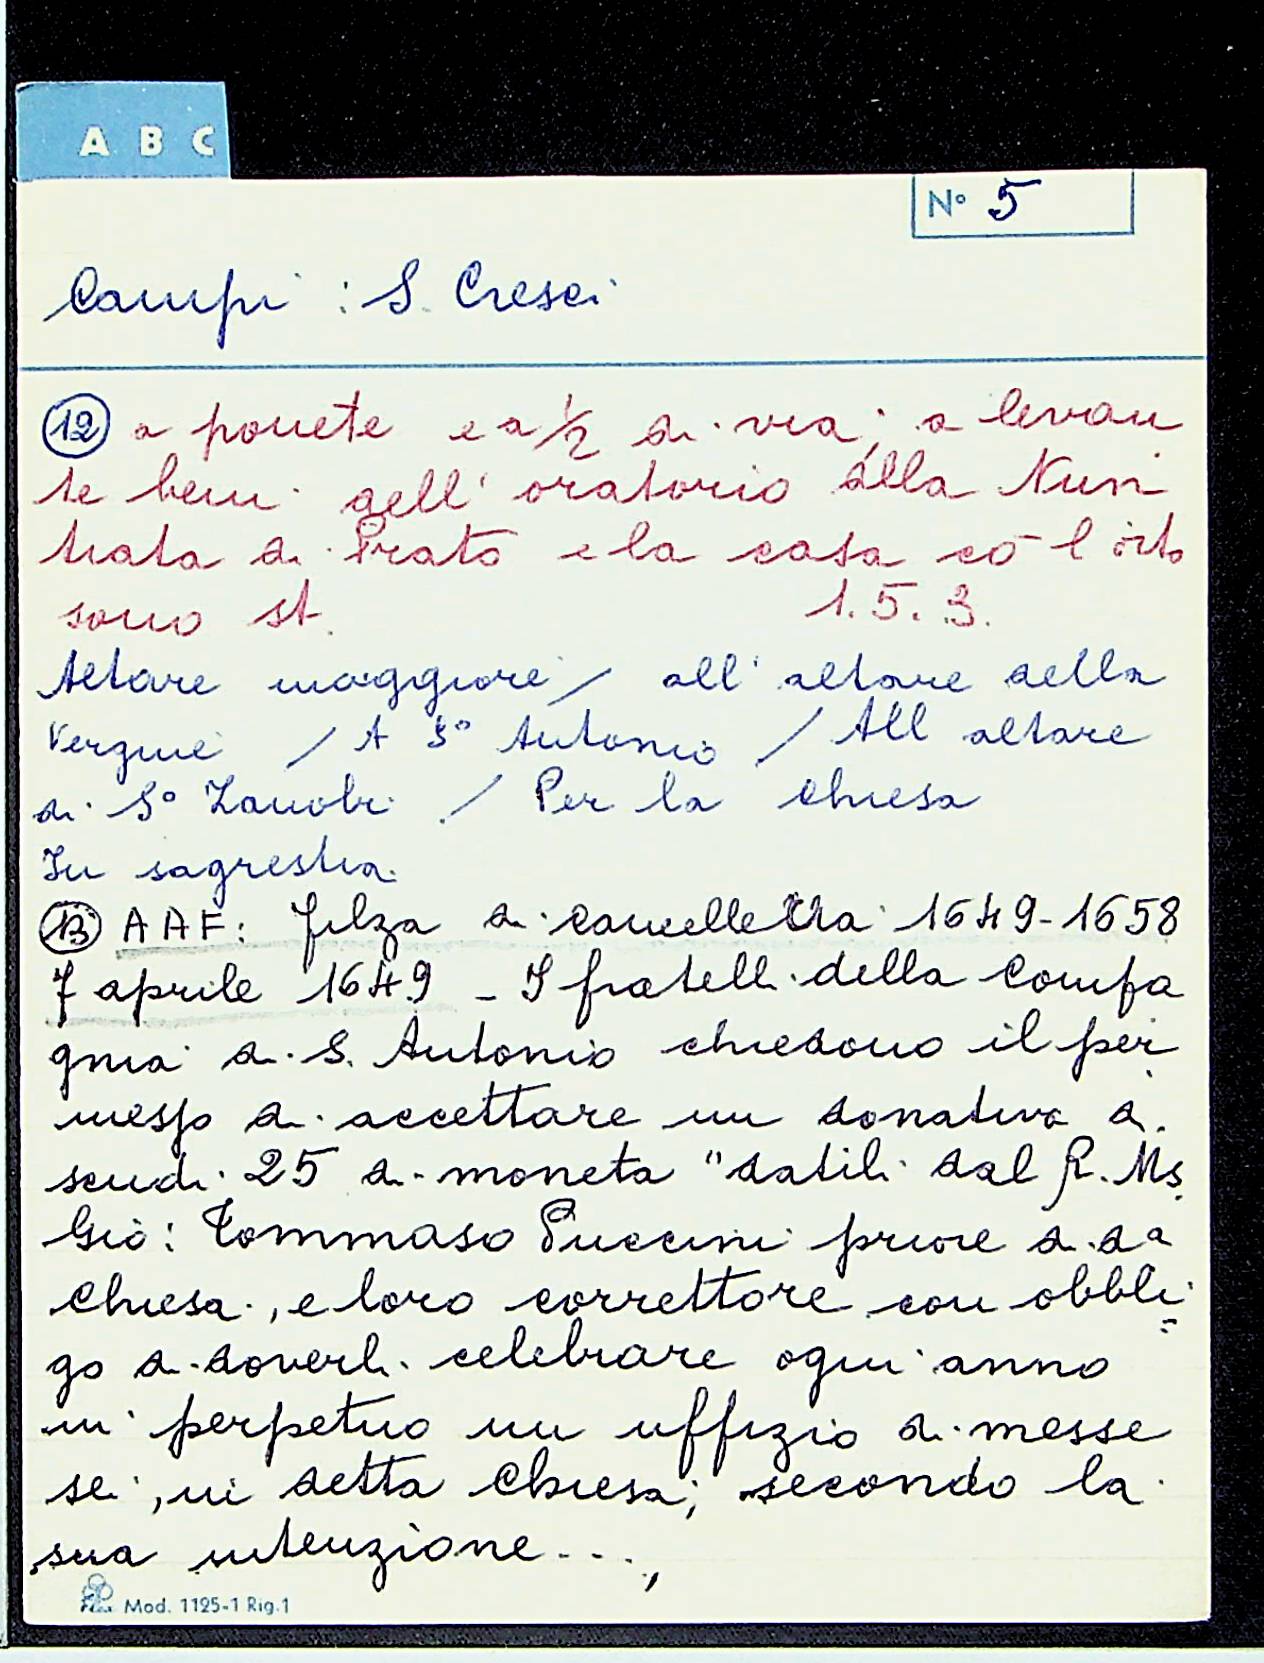 A B C
N° 5
Campi : S. Cresci
12 a ponete e a 1/2 di via; a levan
te beni dell' oratorio della Nun
tiata di Prato e la casa cō l'orto
sono st. 1.5.3.
Altare maggiore / all'altare della
Vergine / A S° Antonio / All altare
di S° Zanobi / Per la chiesa
In sagrestia.
13 AAF: filza di cancelleria 1649-1658
7 aprile 1649 - I fratelli della Compa
gnia di S. Antonio chiedono il per
messo di accettare un donativo di
scudi 25 di moneta "datili dal R. Ms.
Gio: Tommaso Puccini priore di da
Chiesa, e loro correttore con obbli=
go di doverli celebrare ogni anno
in perpetuo un uffizio di messe
sei, in detta Chiesa; secondo la
sua intenzione...,
Mod. 1125-1 Rig.1